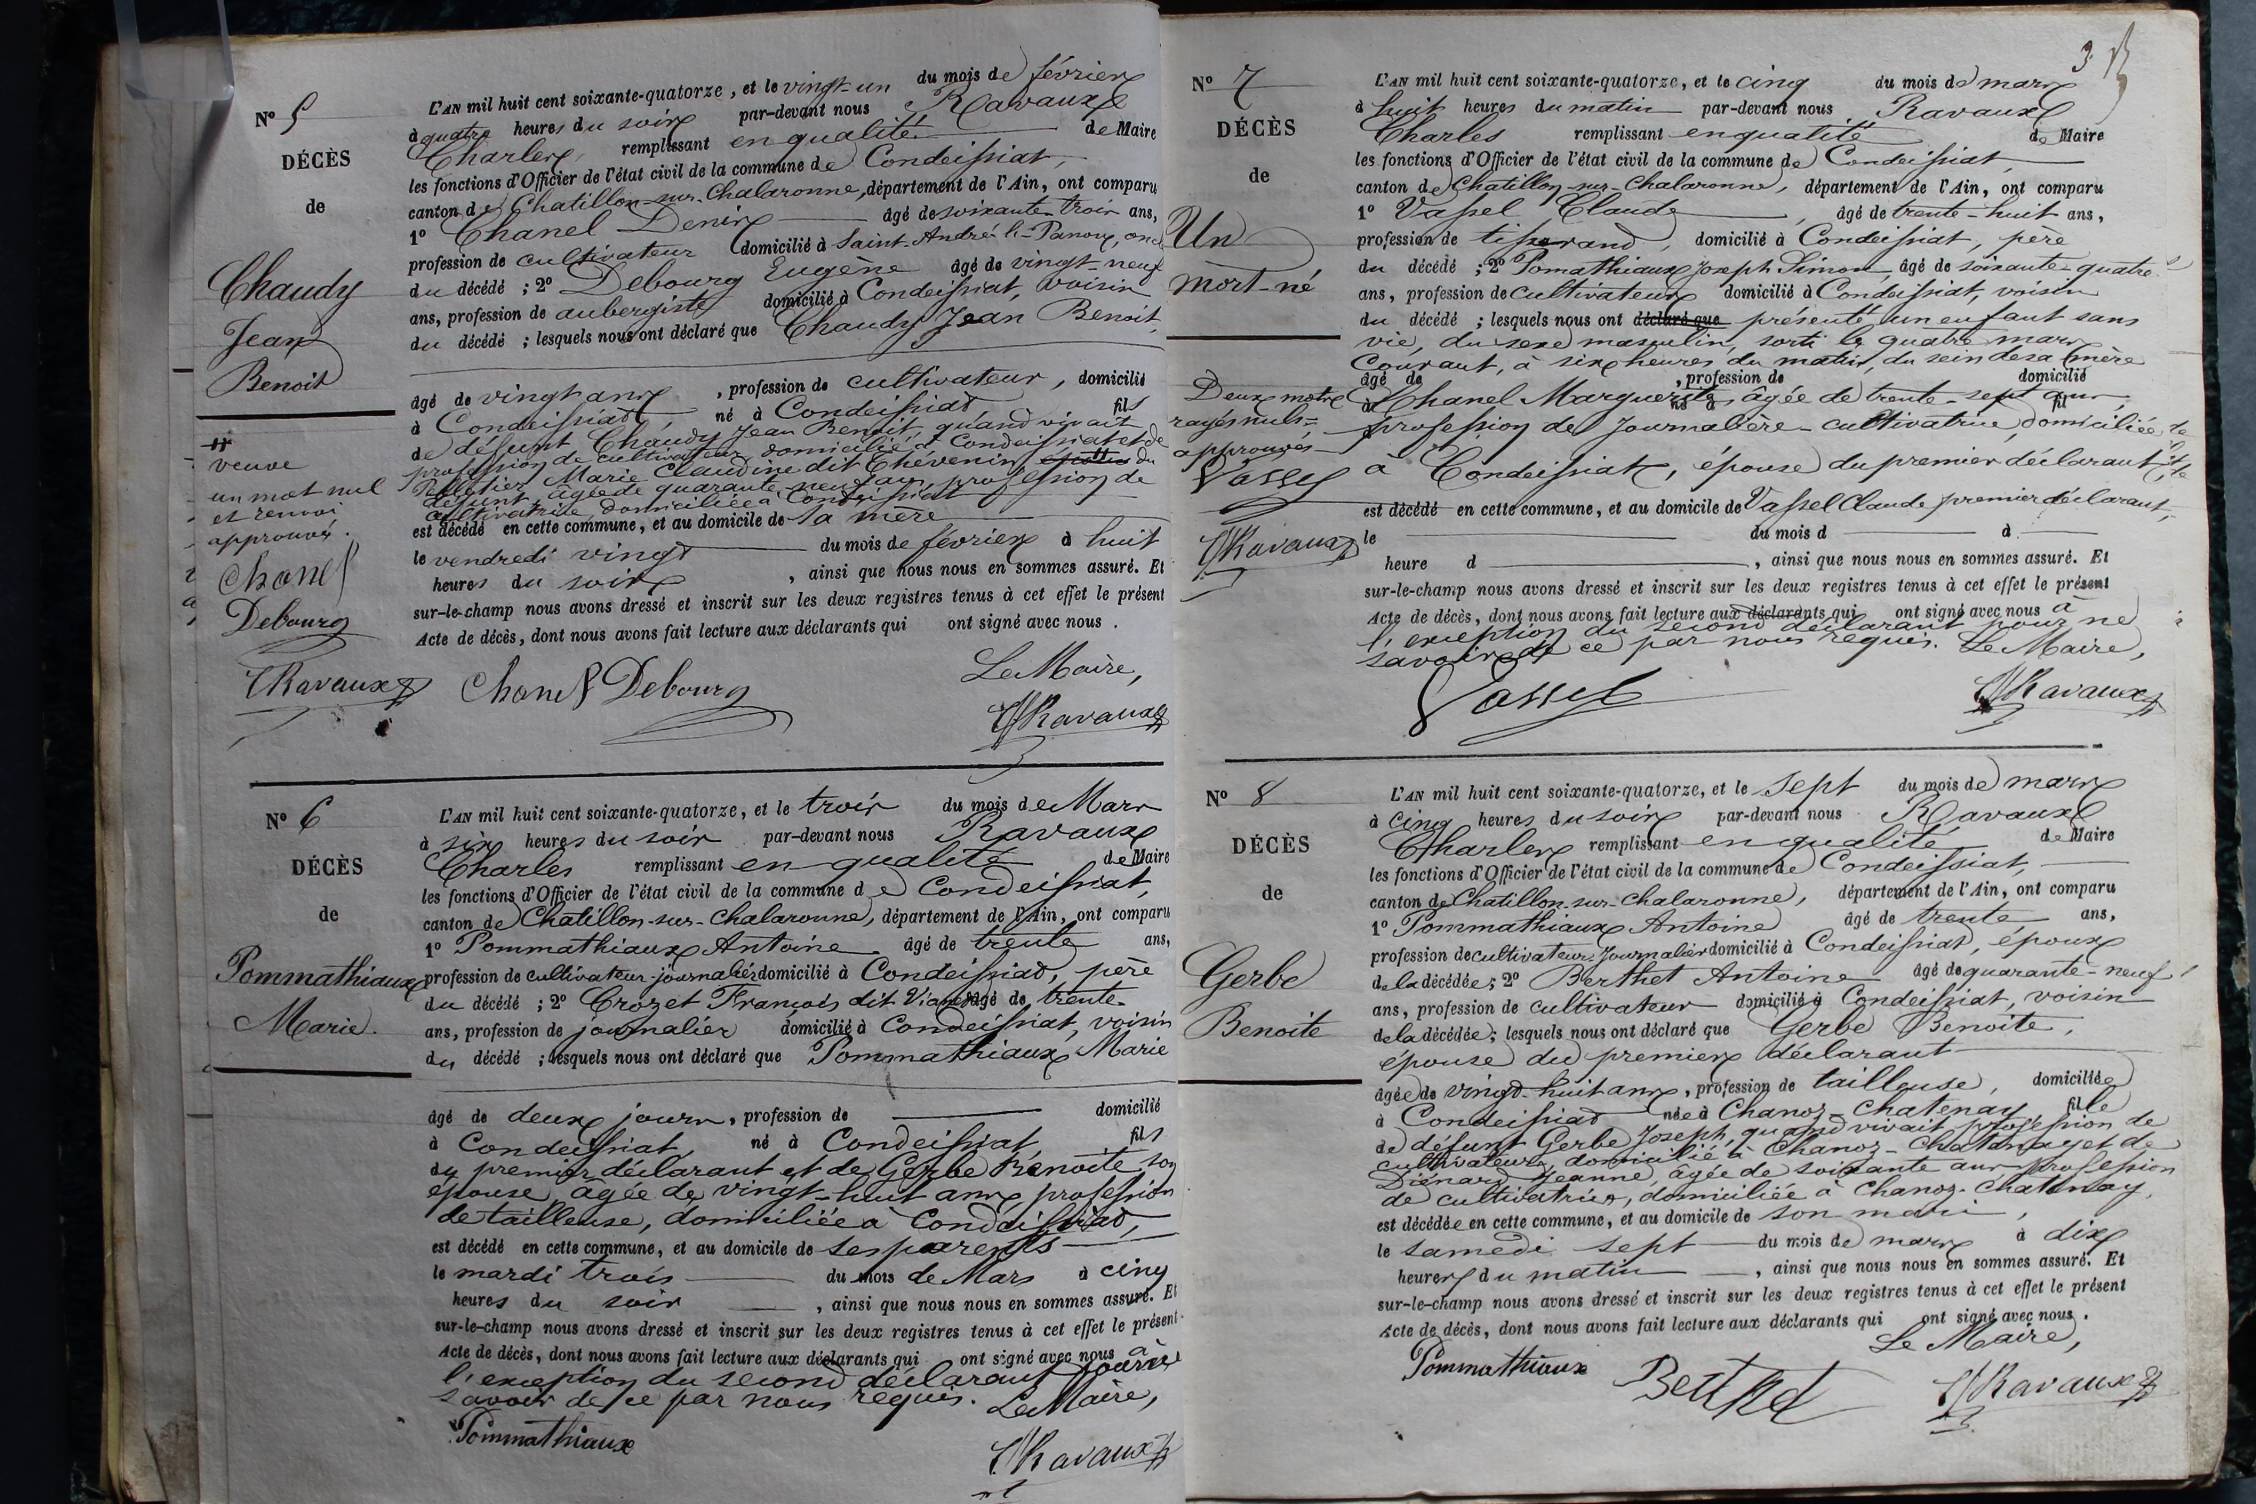 N° 5
DÉCÈS
de
Chaudy
Jean
Benoit
veuve
un mot nul
et renvoi
approuvés.
Chanel
Debourg
Ravaux
L'AN mil huit cent soixante-quatorze, et le vingt-un du mois de février
à quatre heures du soir par-devant nous Ravaux
Charles, remplissant en qualité de Maire
les fonctions d'Officier de l'état civil de la commune de Condeissiat,
canton de Chatillon-sur-Chalaronne, département de l'Ain, ont comparu
1° Chanel Denis âgé de soixante-trois ans,
profession de cultivateur domicilié à Saint-André-le-Panoux, oncle
du décédé ; 2° Debourg Eugène âgé de vingt-neuf
ans, profession de aubergiste domicilié à Condeissiat, voisin
du décédé ; lesquels nous ont déclaré que Chaudy Jean Benoit,
âgé de vingt ans, profession de cultivateur, domicilié
à Condeissiat, né à Condeissiat fils
de défunt Chaudy Jean Benoit, quand vivait
profession de cultivateur, domicilié à Condeissiat et de
Pelletier Marie Claudine dit Thévenin, épouse du
défunt, âgée de quarante-neuf ans, profession de
cultivatrice, domiciliée à Condeissiat
est décédé en cette commune, et au domicile de sa mère
le vendredi vingt du mois de février à huit
heures du soir, ainsi que nous nous en sommes assuré. Et
sur-le-champ nous avons dressé et inscrit sur les deux registres tenus à cet effet le présent
Acte de décès, dont nous avons fait lecture aux déclarants qui ont signé avec nous.
Le Maire,
Chanel Debourg Ravaux
N° 6
DÉCÈS
de
Pommathiaux
Marie.
L'AN mil huit cent soixante-quatorze, et le trois du mois de Mars
à six heures du soir par-devant nous Ravaux
Charles remplissant en qualité de Maire
les fonctions d'Officier de l'état civil de la commune de Condeissiat,
canton de Chatillon-sur-Chalaronne, département de l'Ain, ont comparu
1° Pommathiaux Antoine âgé de trente ans,
profession de cultivateur-journalier domicilié à Condeissiat, père
du décédé ; 2° Crozet François dit âgé de trente-
ans, profession de journalier domicilié à Condeissiat, voisin
du décédé ; lesquels nous ont déclaré que Pommathiaux Marie
âgé de deux jours, profession de domicilié
à Condeissiat, né à Condeissiat, fils
du premier déclarant et de Gerbe Benoite son
épouse, âgée de vingt-huit ans, profession
de tailleuse, domiciliée à Condeissiat,
est décédé en cette commune, et au domicile de ses parents
le mardi trois du mois de Mars à cinq
heures du soir, ainsi que nous nous en sommes assuré. Et
sur-le-champ nous avons dressé et inscrit sur les deux registres tenus à cet effet le présent
Acte de décès, dont nous avons fait lecture aux déclarants qui ont signé avec nous à
l'exception du second déclarant pour ne
savoir de ce par nous requis. Le Maire,
Pommathiaux
Ravaux
3
N° 7
DÉCÈS
de
Un
mort-né
Deux mots
rayés nuls
approuvés
Vassel
Ravaux
L'AN mil huit cent soixante-quatorze, et le cinq du mois de mars
à huit heures du matin par-devant nous Ravaux
Charles remplissant en qualité de Maire
les fonctions d'Officier de l'état civil de la commune de Condeissiat,
canton de Chatillon-sur-Chalaronne, département de l'Ain, ont comparu
1° Vassel Claude, âgé de trente-huit ans,
profession de tisserand, domicilié à Condeissiat, père
du décédé ; 2° Pomathiaux Joseph Simon, âgé de soixante-quatre
ans, profession de cultivateur domicilié à Condeissiat, voisin
du décédé ; lesquels nous ont déclaré que présenté un enfant sans
vie, du sexe masculin, sorti le quatre mars
courant, à six heures du matin, du sein de sa mère
âgé de, profession de domicilié
à Chanel Marguerite né à âgée de trente-sept ans, fil
profession de journalière-cultivatrice, domiciliée
à Condeissiat, épouse du premier déclarant,
est décédé en cette commune, et au domicile de Vassel Claude premier déclarant,
le du mois d à
heure d, ainsi que nous nous en sommes assuré. Et
sur-le-champ nous avons dressé et inscrit sur les deux registres tenus à cet effet le présent
Acte de décès, dont nous avons fait lecture aux déclarants qui ont signé avec nous à
l'exception du second déclarant pour ne
savoir de ce par nous requis. Le Maire,
Vassel
Ravaux
N° 8
DÉCÈS
de
Gerbe
Benoite
L'AN mil huit cent soixante-quatorze, et le sept du mois de mars
à cinq heures du soir par-devant nous Ravaux
Charles remplissant en qualité de Maire
les fonctions d'Officier de l'état civil de la commune de Condeissiat,
canton de Chatillon-sur-Chalaronne, département de l'Ain, ont comparu
1° Pommathiaux Antoine âgé de trente ans,
profession de cultivateur-Journalier domicilié à Condeissiat, époux
de la décédée ; 2° Berthet Antoine âgé de quarante-neuf
ans, profession de cultivateur domicilié à Condeissiat, voisin
de la décédée ; lesquels nous ont déclaré que Gerbe Benoite,
épouse du premier déclarant
âgée de vingt-huit ans, profession de tailleuse, domiciliée
à Condeissiat née à Chanoz-Chatenay fille
de défunt Gerbe Joseph, quand vivait profession de
cultivateur, domicilié à Chanoz-Chatenay et de
Diénard Jeanne, âgée de soixante ans profession
de cultivatrice, domiciliée à Chanoz-Chatenay,
est décédée en cette commune, et au domicile de son mari,
le samedi sept du mois de mars à dix
heures du matin, ainsi que nous nous en sommes assuré. Et
sur-le-champ nous avons dressé et inscrit sur les deux registres tenus à cet effet le présent
Acte de décès, dont nous avons fait lecture aux déclarants qui ont signé avec nous.
Le Maire,
Pommathiaux Berthet Ravaux